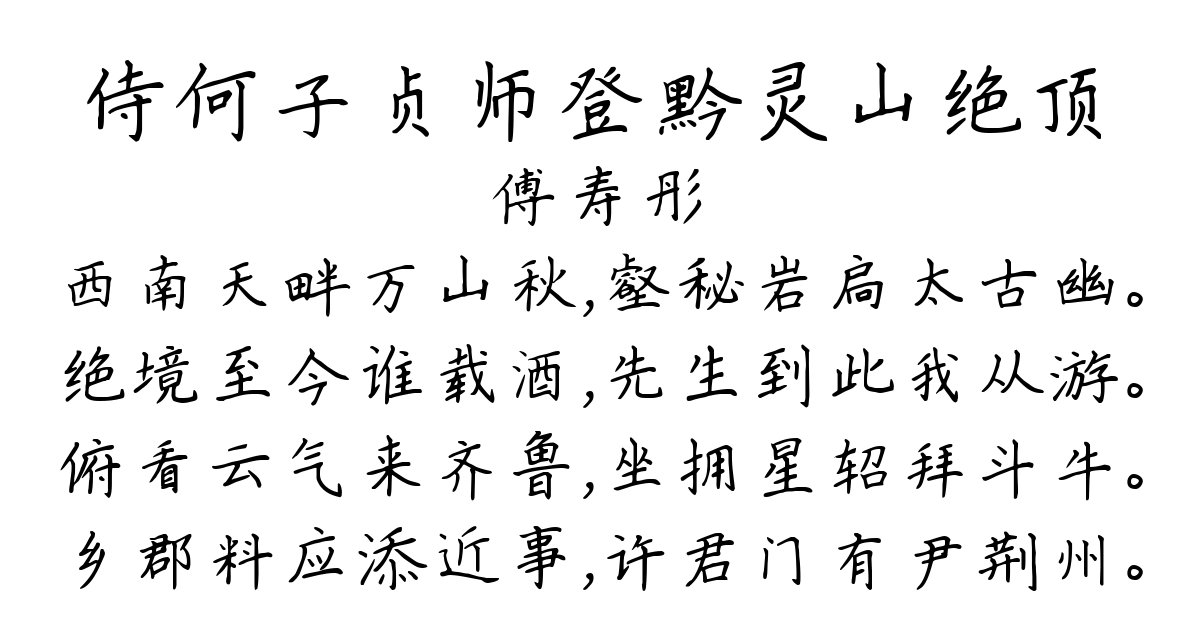 侍何子贞师登黔灵山绝顶
傅寿彤
西南天畔万山秋,壑秘岩扃太古幽。
绝境至今谁载酒,先生到此我从游。
俯看云气来齐鲁,坐拥星轺拜斗牛。
乡郡料应添近事,许君门有尹荆州。